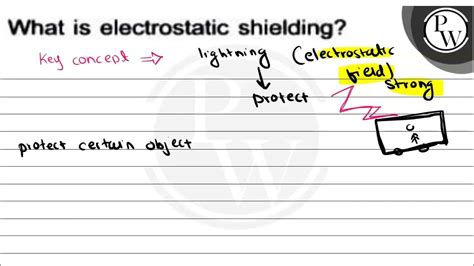 What is electrostatic shielding?
P
W
Key concept ⇒ lightning (electrostatic
field)
strong
protect
protect certain object
PW